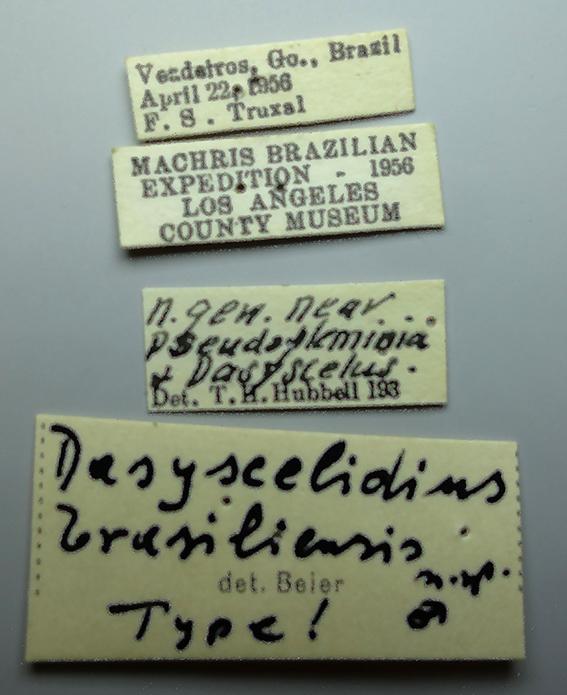 Veadeiros, Go., Brazil
April 22, 1956
F. S. Truxal
MACHRIS BRAZILIAN
EXPEDITION - 1956
LOS ANGELES
COUNTY MUSEUM
n. gen. near
& Dasyscelus.
Det. T. H. Hubbell 193
Dasyscelidius
brasiliensis
n.sp.
det. Beier
Type! ♂